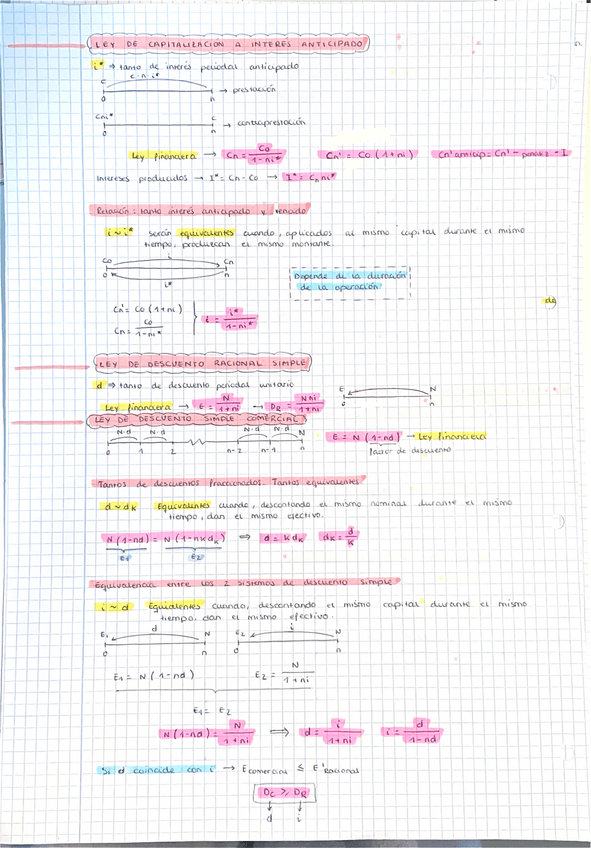 LEY DE CAPITALIZACION A INTERES ANTICIPADO
i* → tanto de interés periodal anticipado
C c·n·i*
0 n → prestación
Cni* C
0 n → contraprestación
Ley financiera → Cn = Co / 1-ni* Cn' = Co (1+ni)
Intereses producidos → I* = Cn - Co → I* = Cn ni*
Relación: tanto interés anticipado y vencido
i ~ i* serán equivalentes cuando, aplicados al mismo capital durante el mismo
tiempo, produzcan el mismo montante.
Co i Cn
0 i* n
Depende de la duración
de la operación
Cn' = Co (1+ni)
Cn = Co / 1-ni*
i = i* / 1-ni*
LEY DE DESCUENTO RACIONAL SIMPLE
d → tanto de descuento periodal unitario
Ley financiera → E = N / 1+ni → DR = Nni / 1+ni
E N
0 n
LEY DE DESCUENTO SIMPLE COMERCIAL
N·d N·d N·d N·d N
0 1 2 n-2 n-1 n
E = N (1-nd) → Ley financiera
Factor de descuento
Tantos de descuentos fraccionados. Tantos equivalentes
d ~ dk Equivalentes cuando, descontando el mismo nominal durante el mismo
tiempo, dan el mismo efectivo.
N (1-nd) = N (1-nkdk) ⇒ d = k dk dk = d / k
E1 E2
Equivalencia entre los 2 sistemas de descuento simple
i ~ d Equivalentes cuando, descontando el mismo capital durante el mismo
tiempo, dan el mismo efectivo.
E1 d N E2 i N
0 n 0 n
E1 = N (1-nd) E2 = N / 1+ni
E1 = E2
N (1-nd) = N / 1+ni ⇒ d = i / 1+ni i = d / 1-nd
Si d coincide con i → E comercial ≤ E' Racional
DC ≥ DR
d i